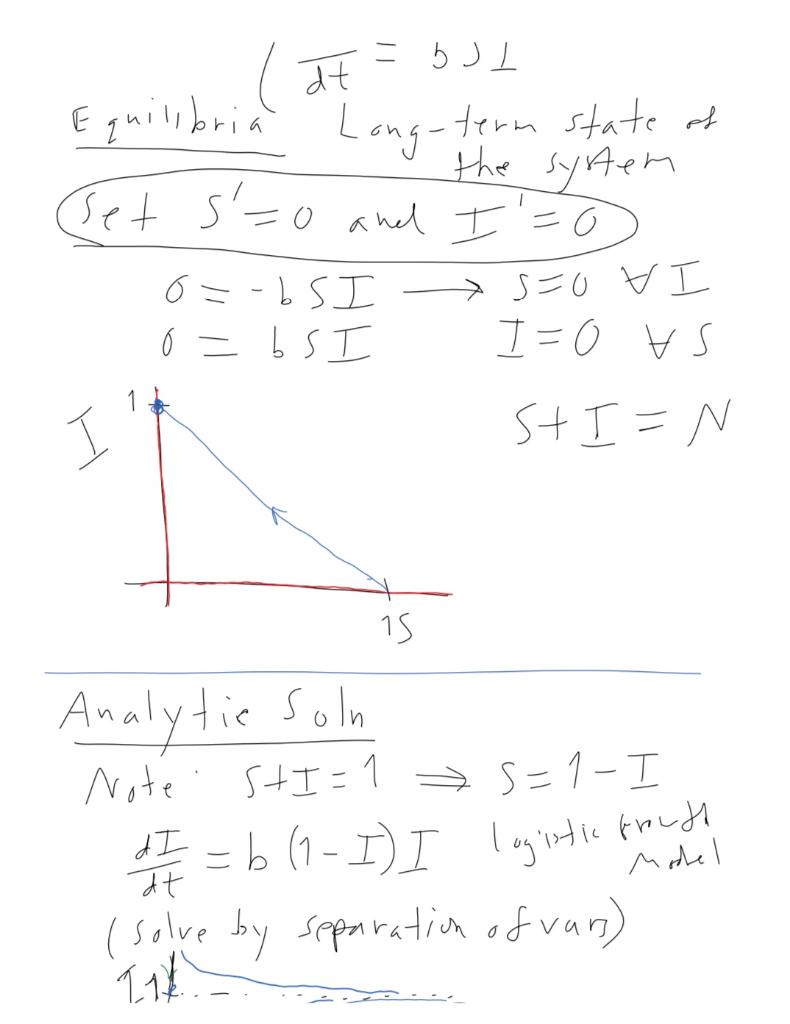 ( /dt = bSI
Equilibria Long-term state of
the system
Set S' = 0 and I' = 0
0 = -bSI → S=0 ∀ I
0 = bSI I=0 ∀ S
1
I
S+I = N
1 S
Analytic Soln
Note: S+I=1 ⇒ S=1-I
dI/dt = b(1-I)I logistic growth
model
(solve by separation of vars)
I 1